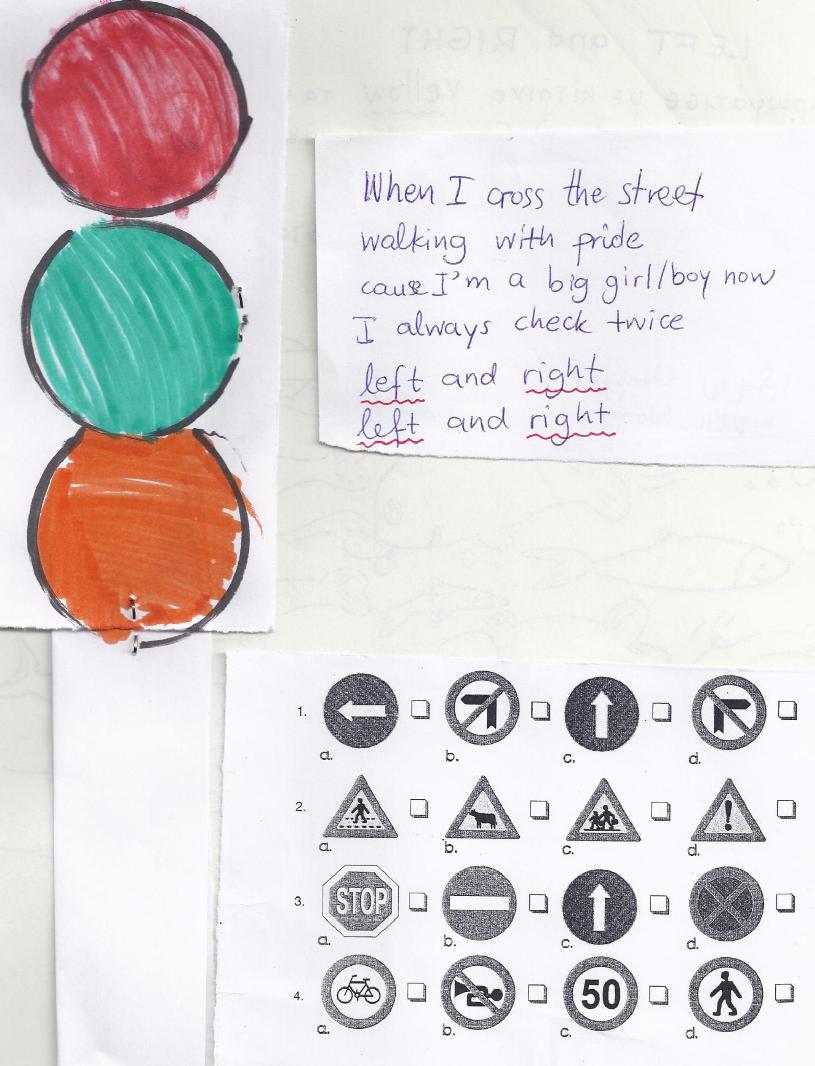 When I cross the street
walking with pride
cause I'm a big girl/boy now
I always check twice
left and right
left and right
1.
a. b. c. d.
2.
a. b. c. d.
3. STOP
a. b. c. d.
4. 50
a. b. c. d.